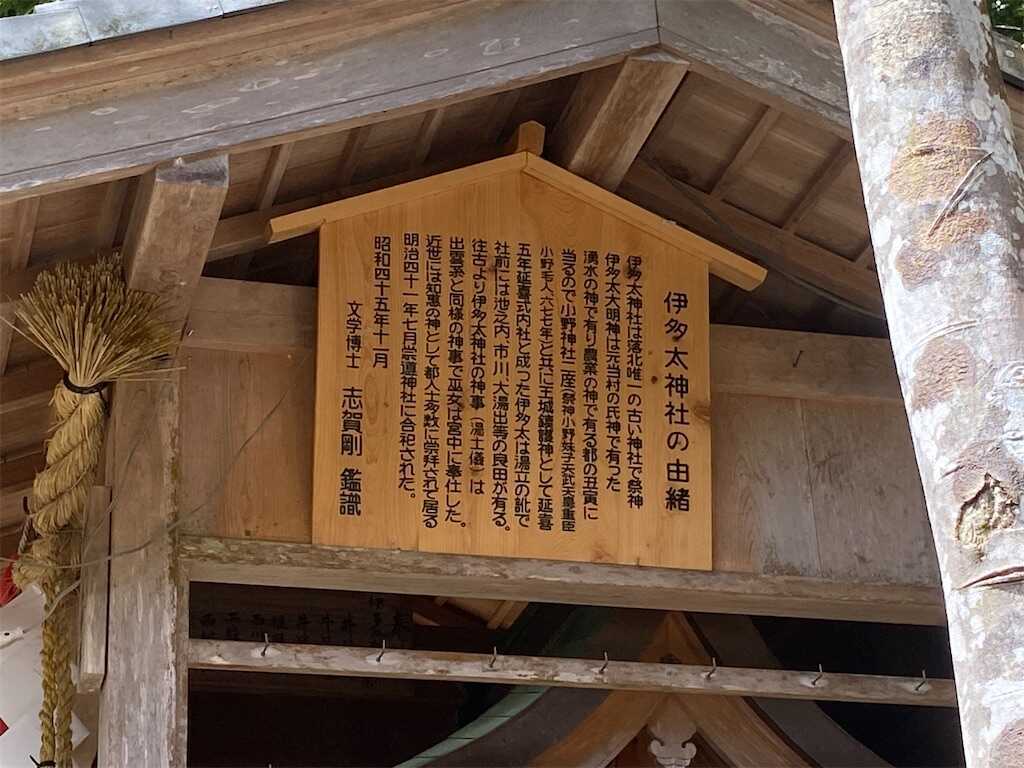 伊多太神社の由緒
伊多太神社は洛北唯一の古い神社で祭神
伊多太大明神は元当村の氏神で有つた
湧水の神で有り農業の神で有る都の丑寅に
当るので小野神社二座祭神小野妹子天武天皇重臣
小野毛人六七七年と共に王城鎮護神として延喜
五年延喜式内社と成つた伊多太は湯立の訛で
社前には池之内、市川、大湯出等の良田が有る。
往古より伊多太神社の神事(湯士儀)は
出雲系と同様の神事で巫女は宮中に奉仕した。
近世には知恵の神として都人士多数に崇拝されて居る
明治四十一年七月崇道神社に合祀された。
昭和四十五年十一月
文学博士 志賀剛 鑑識